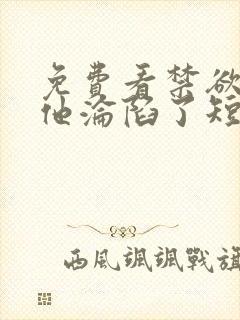 免費看禁欲
他淪陷了短
西風颯颯戰旗